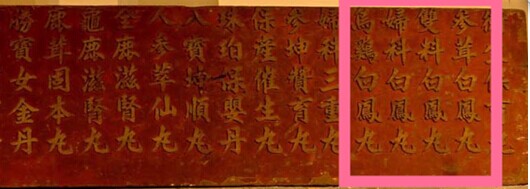 參茸白鳳丸
雙料白鳳丸
婦科白鳳丸
烏鷄白鳳丸
婦科三重丸
參坤贊育丸
保產催生丸
珠珀保嬰丹
八寶坤順丸
人參萃仙丸
全鹿滋腎丸
龜鹿滋腎丸
鹿茸固本丸
勝寶女金丹